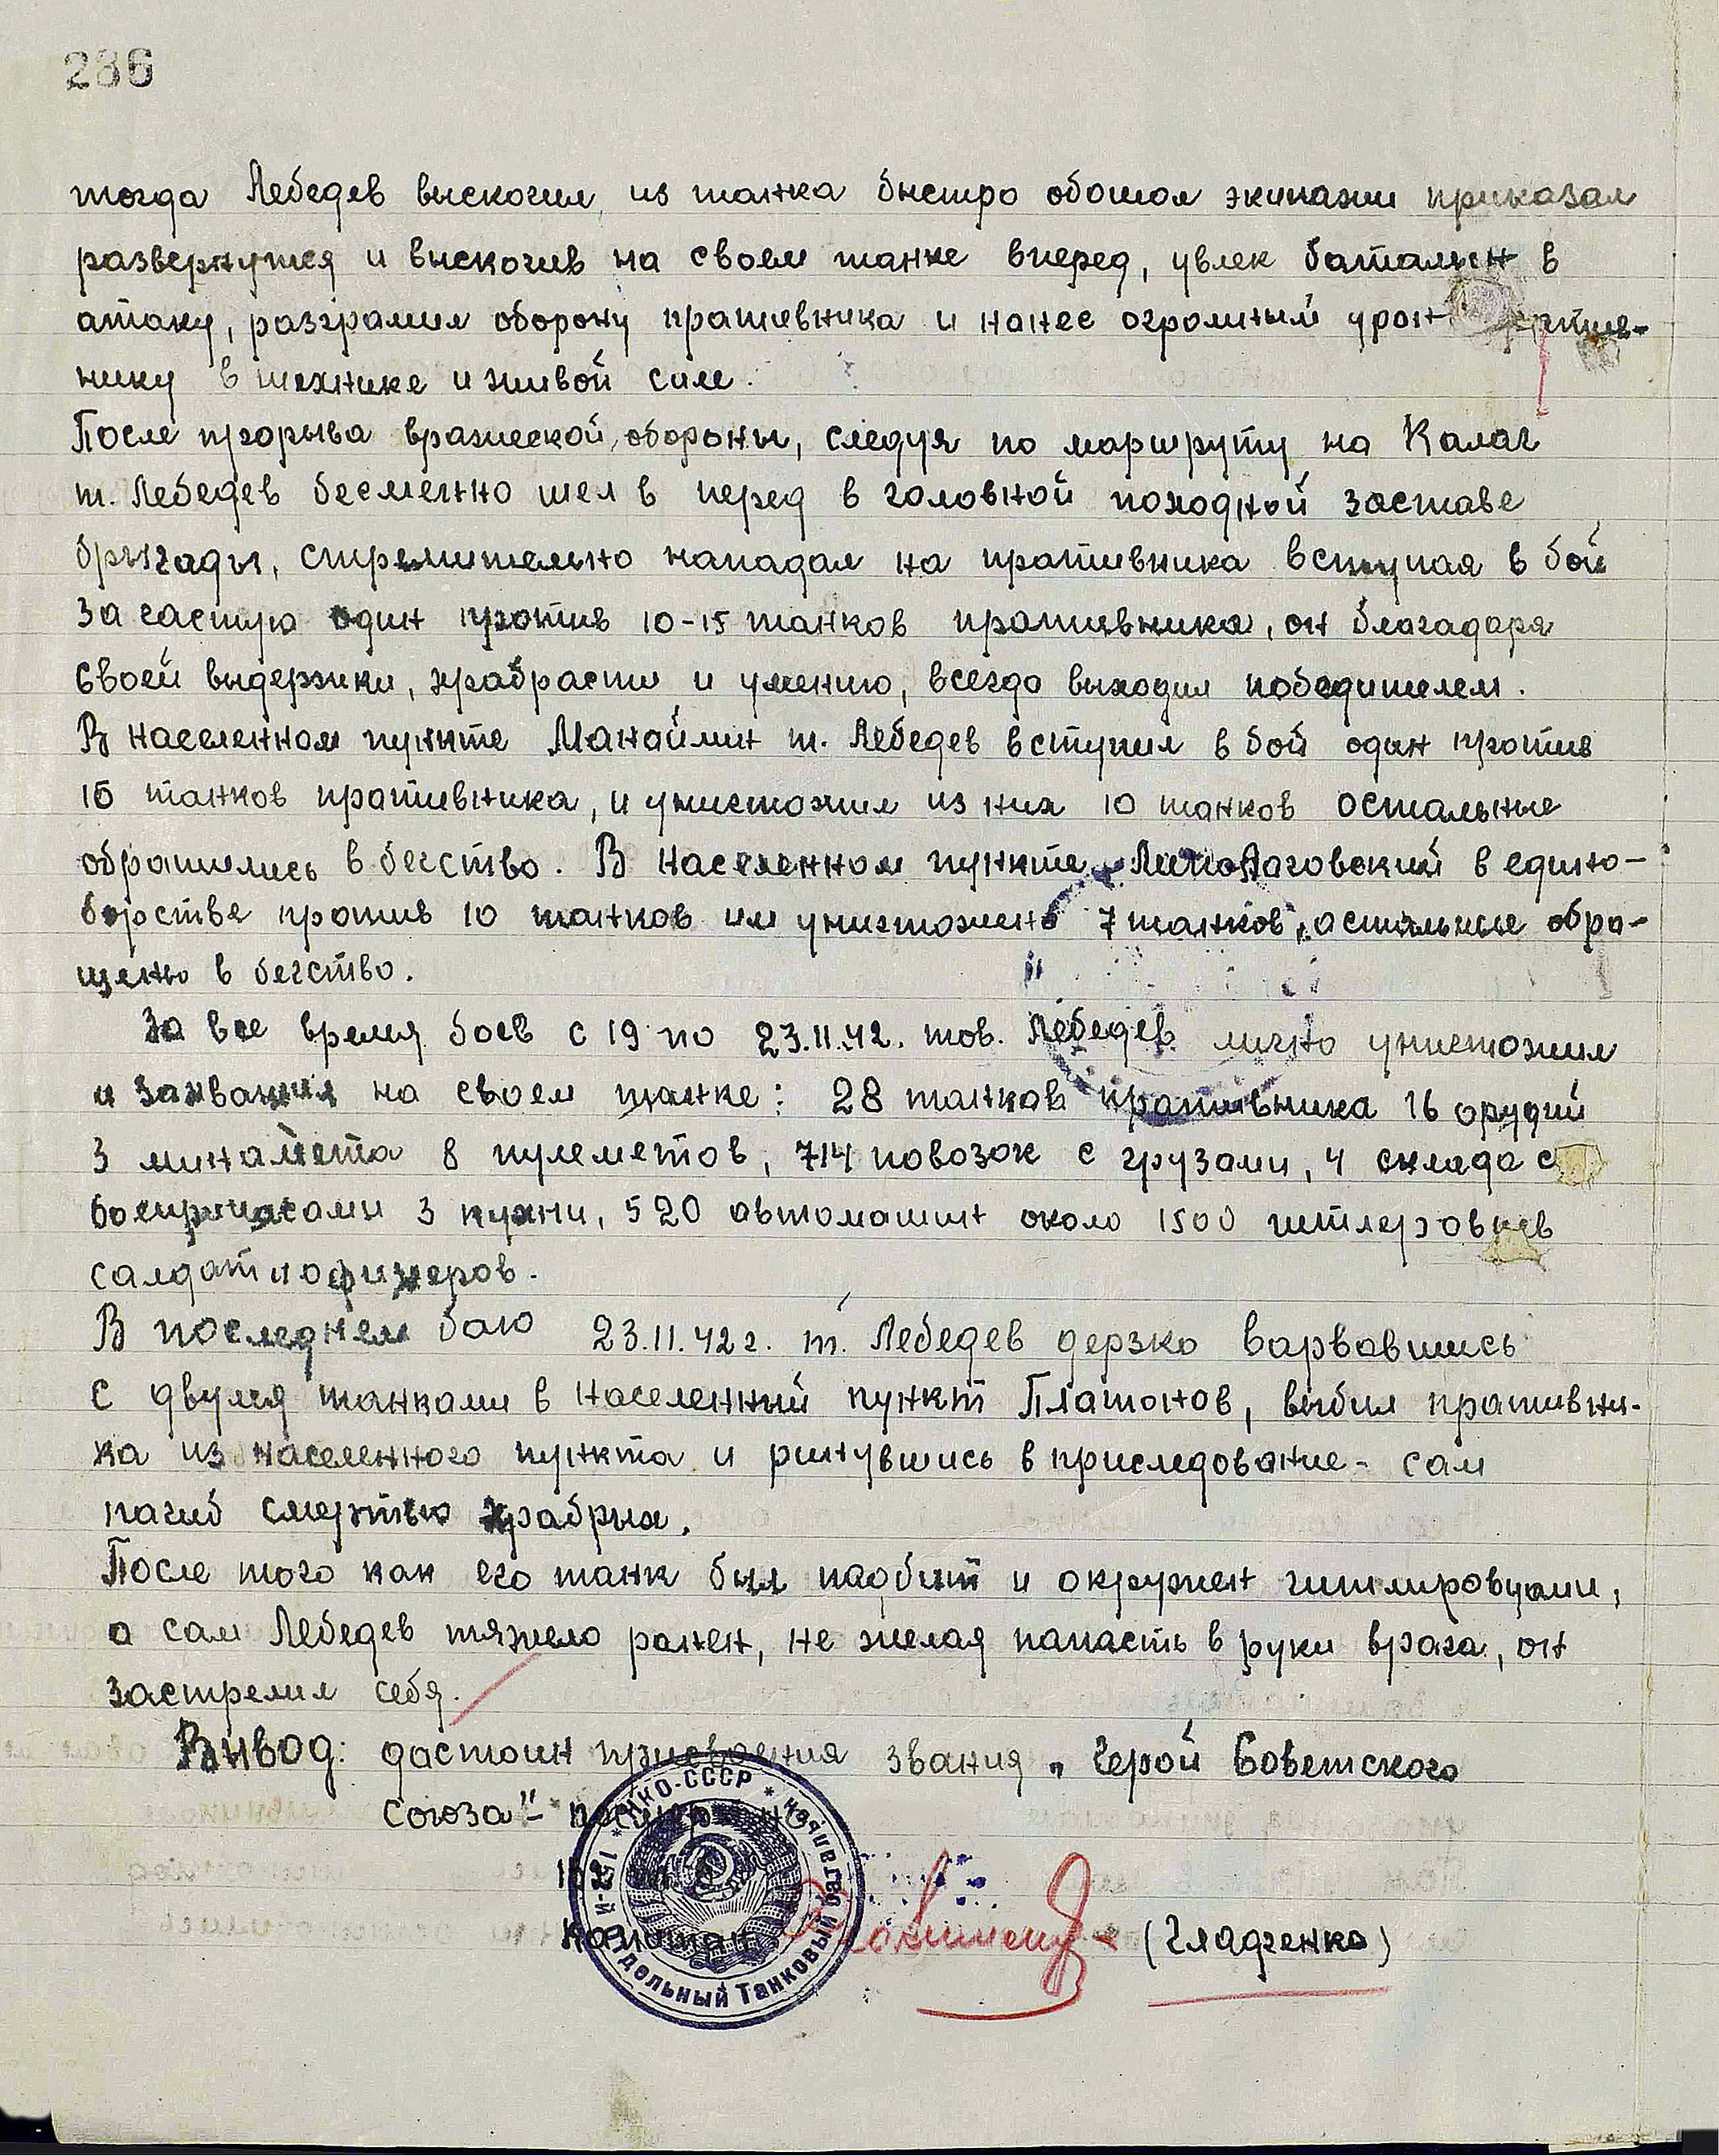 286
тогда Лебедев выскочил из танка быстро обошол экипажи приказал
развернутся и выскочив на своем танке вперед, увлек баталион в
атаку, разграмил оборону пративника и нанес огромный урон
нику в технике и живой силе.
После прорыва вражеской обороны, следуя по маршруту на Калач
т. Лебедев бесменно шел в перед в головной походной заставе
брыгады, стремительно нападал на пративника вступая в бой
за састую один против 10-15 танков пративника, он благадаря
своей выдержки, храбрасти и умению, всегда выходил победителем.
В населенном пункте Манойлин т. Лебедев вступил в бой один против
15 танков пративника, и уничтожил из них 10 танков остальные
обратились в бегство. В населенном пункте Липолаговский в едино-
борстве против 10 танков им уничтожено 7 танков, астальные обра-
щено в бегство.
За все время боев с 19 по 23.11.42. тов. Лебедев лично уничтожил
и захватил на своем танке: 28 танков пративника 16 орудий
3 минамета 8 пулеметов, 714 повозок с грузами, 4 склада с
боеприпасами 3 кухни, 520 автомашин около 1500 гитлеровцев
салдат и офицеров.
В последнем баю 23.11.42 г. т. Лебедев дерзко варвавшись
с двумя танками в населенный пункт Платонов, выбил пративни-
ка из населенного пункта и ринувшись в приследование - сам
пагиб смертью храбрых.
После того как его танк был падбит и окружен гитлировцами,
а сам Лебедев тяжело ранен, не желая папасть в руки врага, он
застрелил себя.
Вывод: дастоин присвоения звания „Герой Советского
Союза" - посмертно
НКО-СССР * 152-й Отдельный Танковый батальон *
(Гладченко)